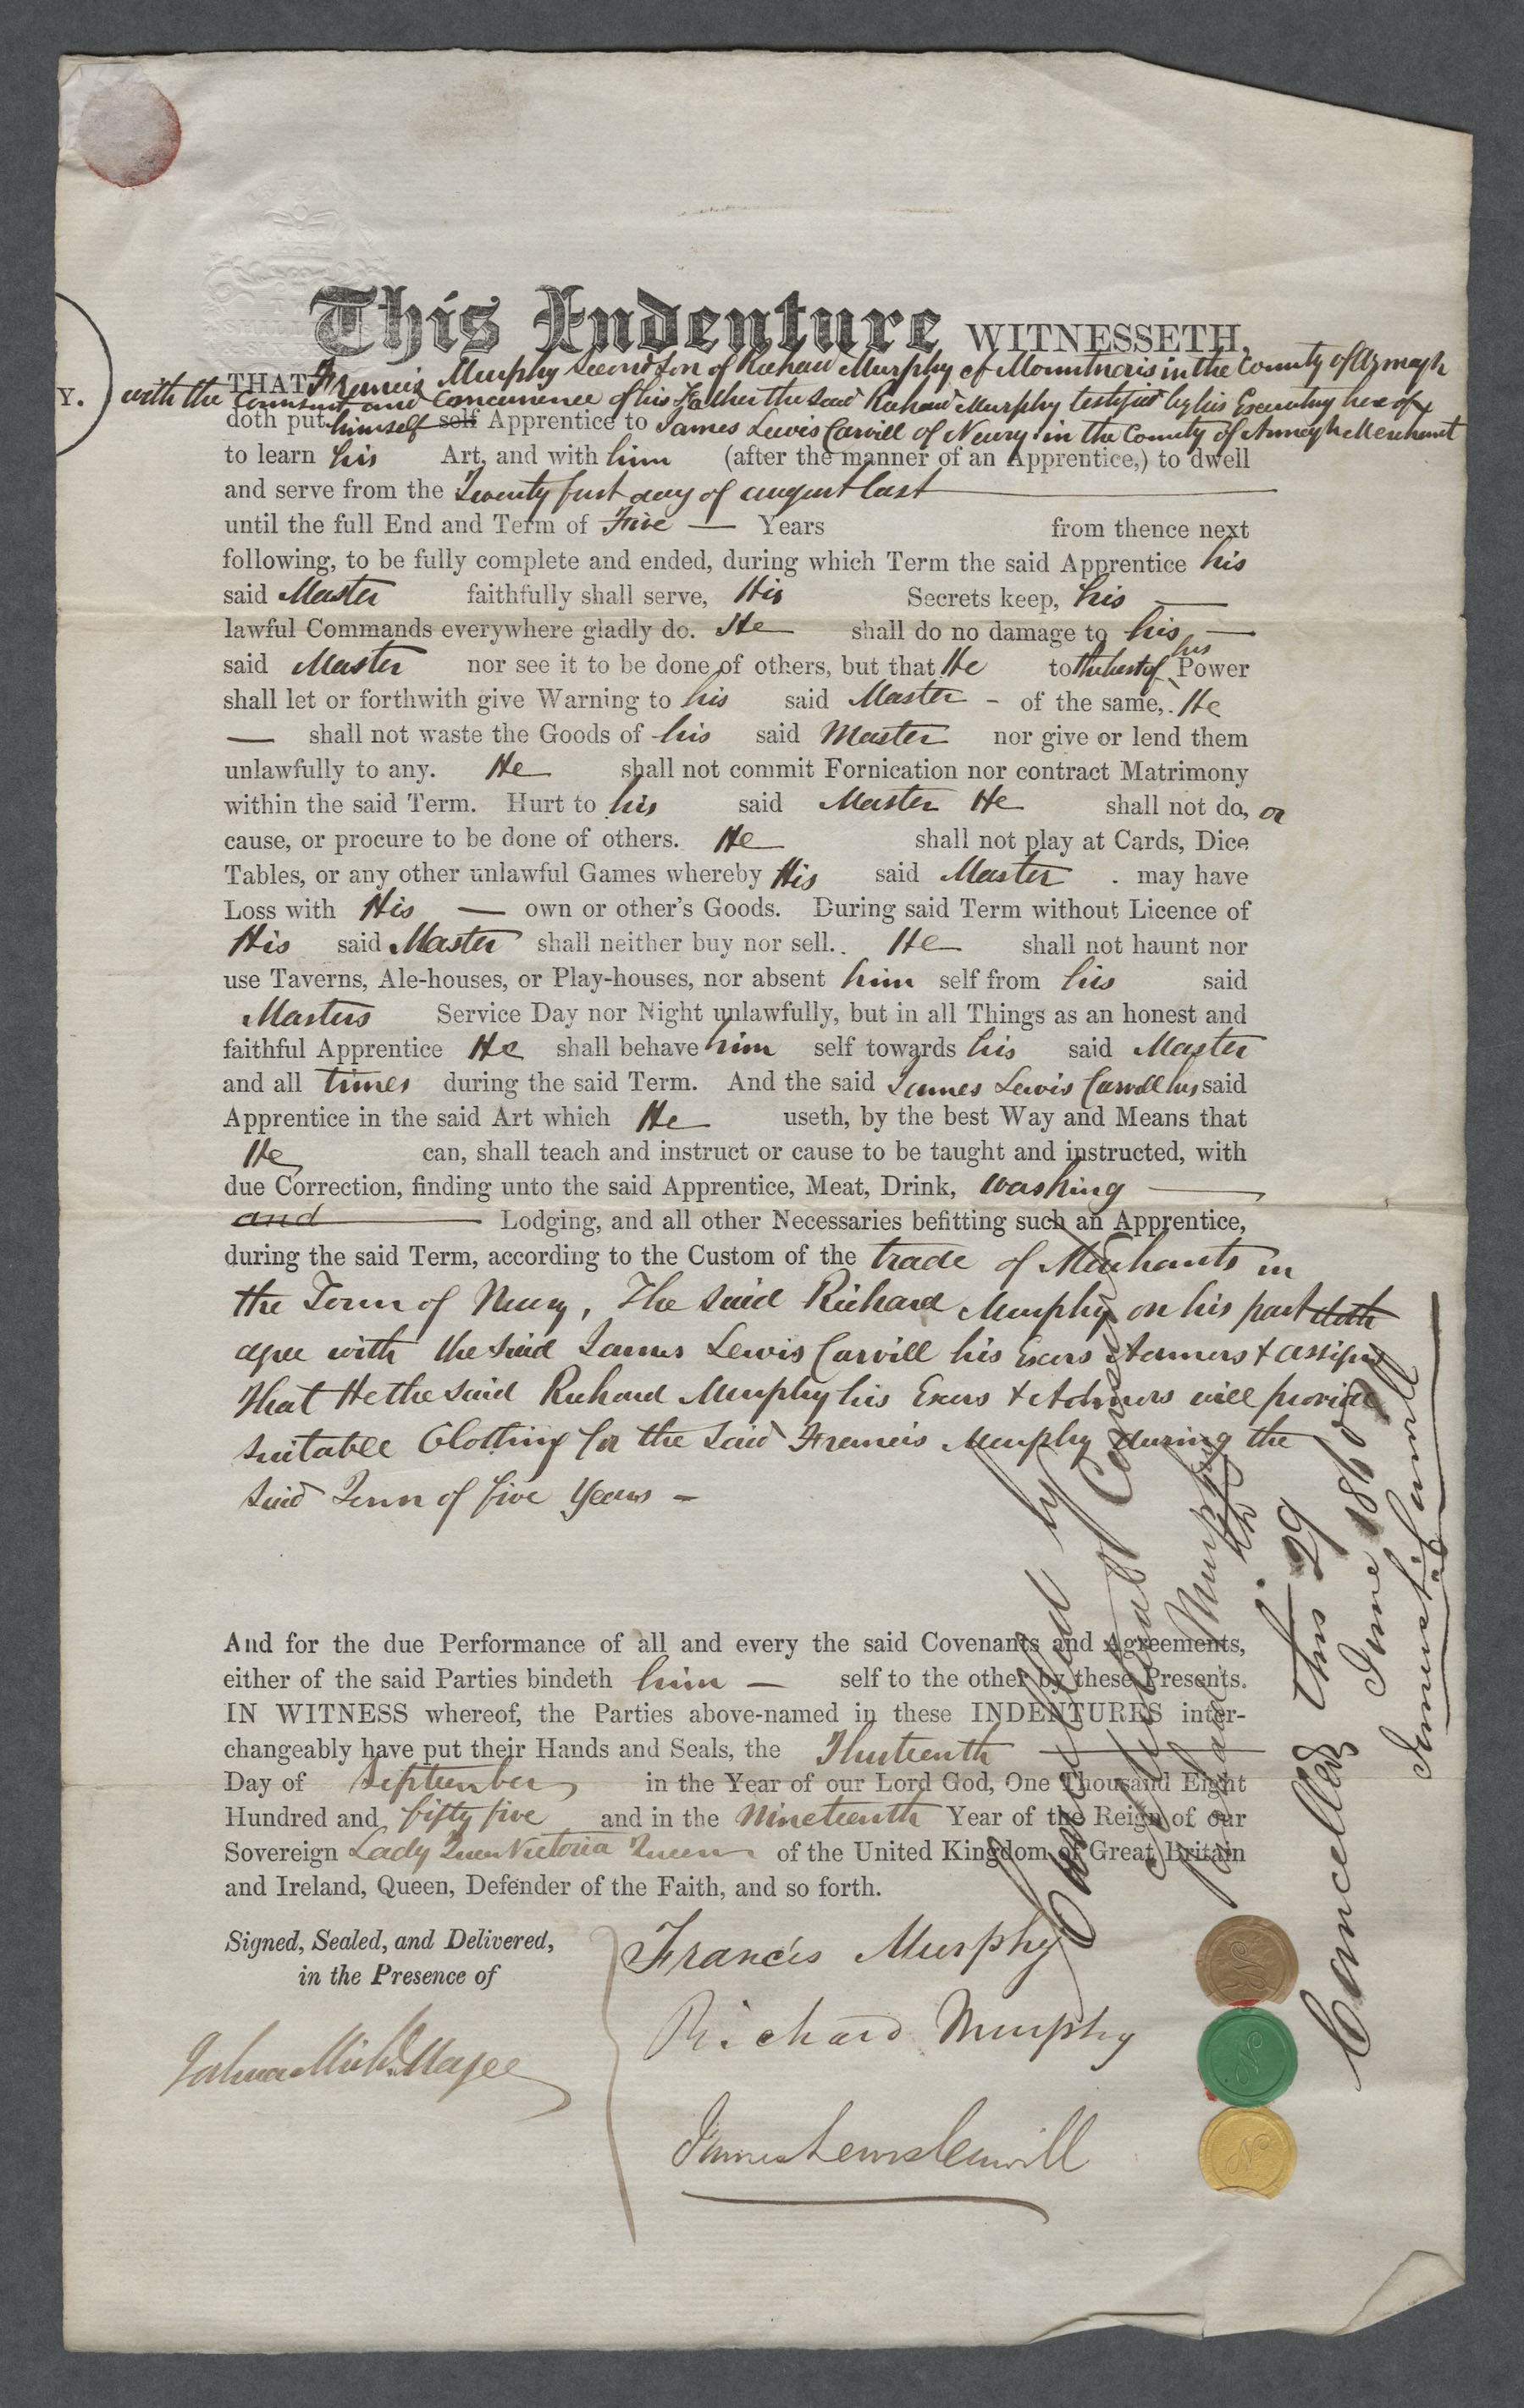 Y.
This Indenture WITNESSETH,
THAT Francis Murphy Second Son of Richard Murphy of Mountnoris in the County of Armagh
with the Consent and Concurrence of his Father the Said Richard Murphy testified by his Executing hereof
doth put himself self Apprentice to James Lewis Carvill of Newry in the County of Armagh Merchant
to learn his Art, and with him (after the manner of an Apprentice,) to dwell
and serve from the Twenty first day of august last
until the full End and Term of Five — Years from thence next
following, to be fully complete and ended, during which Term the said Apprentice his
said Master faithfully shall serve, His Secrets keep, his —
lawful Commands everywhere gladly do. He shall do no damage to his —
said Master nor see it to be done of others, but that He to the best of his Power
shall let or forthwith give Warning to his said Master - of the same, He
— shall not waste the Goods of his said Master nor give or lend them
unlawfully to any. He shall not commit Fornication nor contract Matrimony
within the said Term. Hurt to his said Master He shall not do, or
cause, or procure to be done of others. He shall not play at Cards, Dice
Tables, or any other unlawful Games whereby His said Master . may have
Loss with His — own or other's Goods. During said Term without Licence of
His said Master shall neither buy nor sell. He shall not haunt nor
use Taverns, Ale-houses, or Play-houses, nor absent him self from his said
Masters Service Day nor Night unlawfully, but in all Things as an honest and
faithful Apprentice He shall behave him self towards his said Master
and all times during the said Term. And the said James Lewis Carvill his said
Apprentice in the said Art which He useth, by the best Way and Means that
He can, shall teach and instruct or cause to be taught and instructed, with
due Correction, finding unto the said Apprentice, Meat, Drink, washing —
and — Lodging, and all other Necessaries befitting such an Apprentice,
during the said Term, according to the Custom of the trade of Merchants in
the Town of Newry, The Said Richard Murphy on his part doth
agree with the Said James Lewis Carvill his Exors Admors & assigns
that He the Said Richard Murphy his Exors & Admors will provide
Suitable Clothing for the Said Francis Murphy during the
Said Term of five Years -
And for the due Performance of all and every the said Covenants and Agreements,
either of the said Parties bindeth him — self to the other by these Presents.
IN WITNESS whereof, the Parties above-named in these INDENTURES inter-
changeably have put their Hands and Seals, the Thirteenth
Day of September in the Year of our Lord God, One Thousand Eight
Hundred and fifty five and in the Nineteenth Year of the Reign of our
Sovereign Lady Queen Victoria Queen of the United Kingdom of Great Britain
and Ireland, Queen, Defender of the Faith, and so forth.
Signed, Sealed, and Delivered,
in the Presence of
Francis Murphy
Richard Murphy
James Lewis Carvill
Cancelled by
Mutual Consent
Richard Murphy
Cancelled this 29th
June 1860
James L Carvill